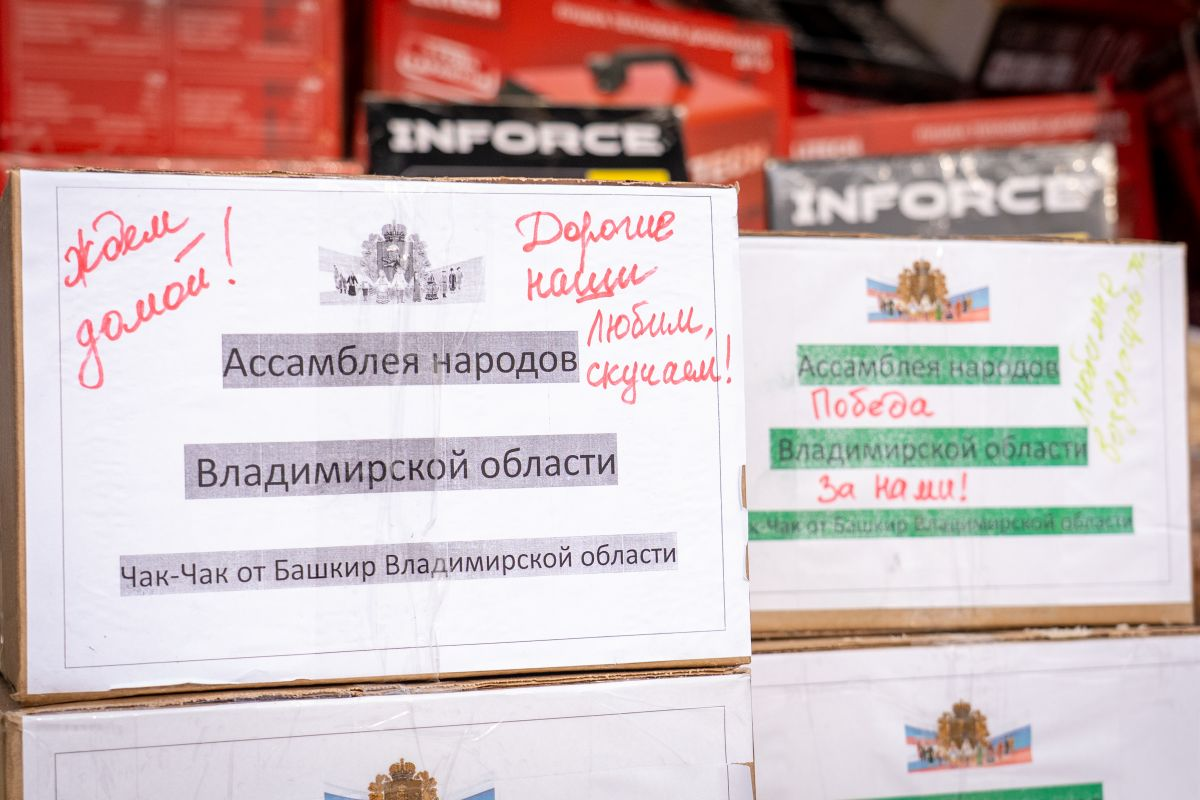 INFORCE
INFORCE
Ждем
домой!
Дорогие
наши
любим,
скучаем!
Ассамблея народов
Владимирской области
Чак-Чак от Башкир Владимирской области
Ассамблея народов
Победа
Владимирской области
За нами!
к-Чак от Башкир Владимирской области